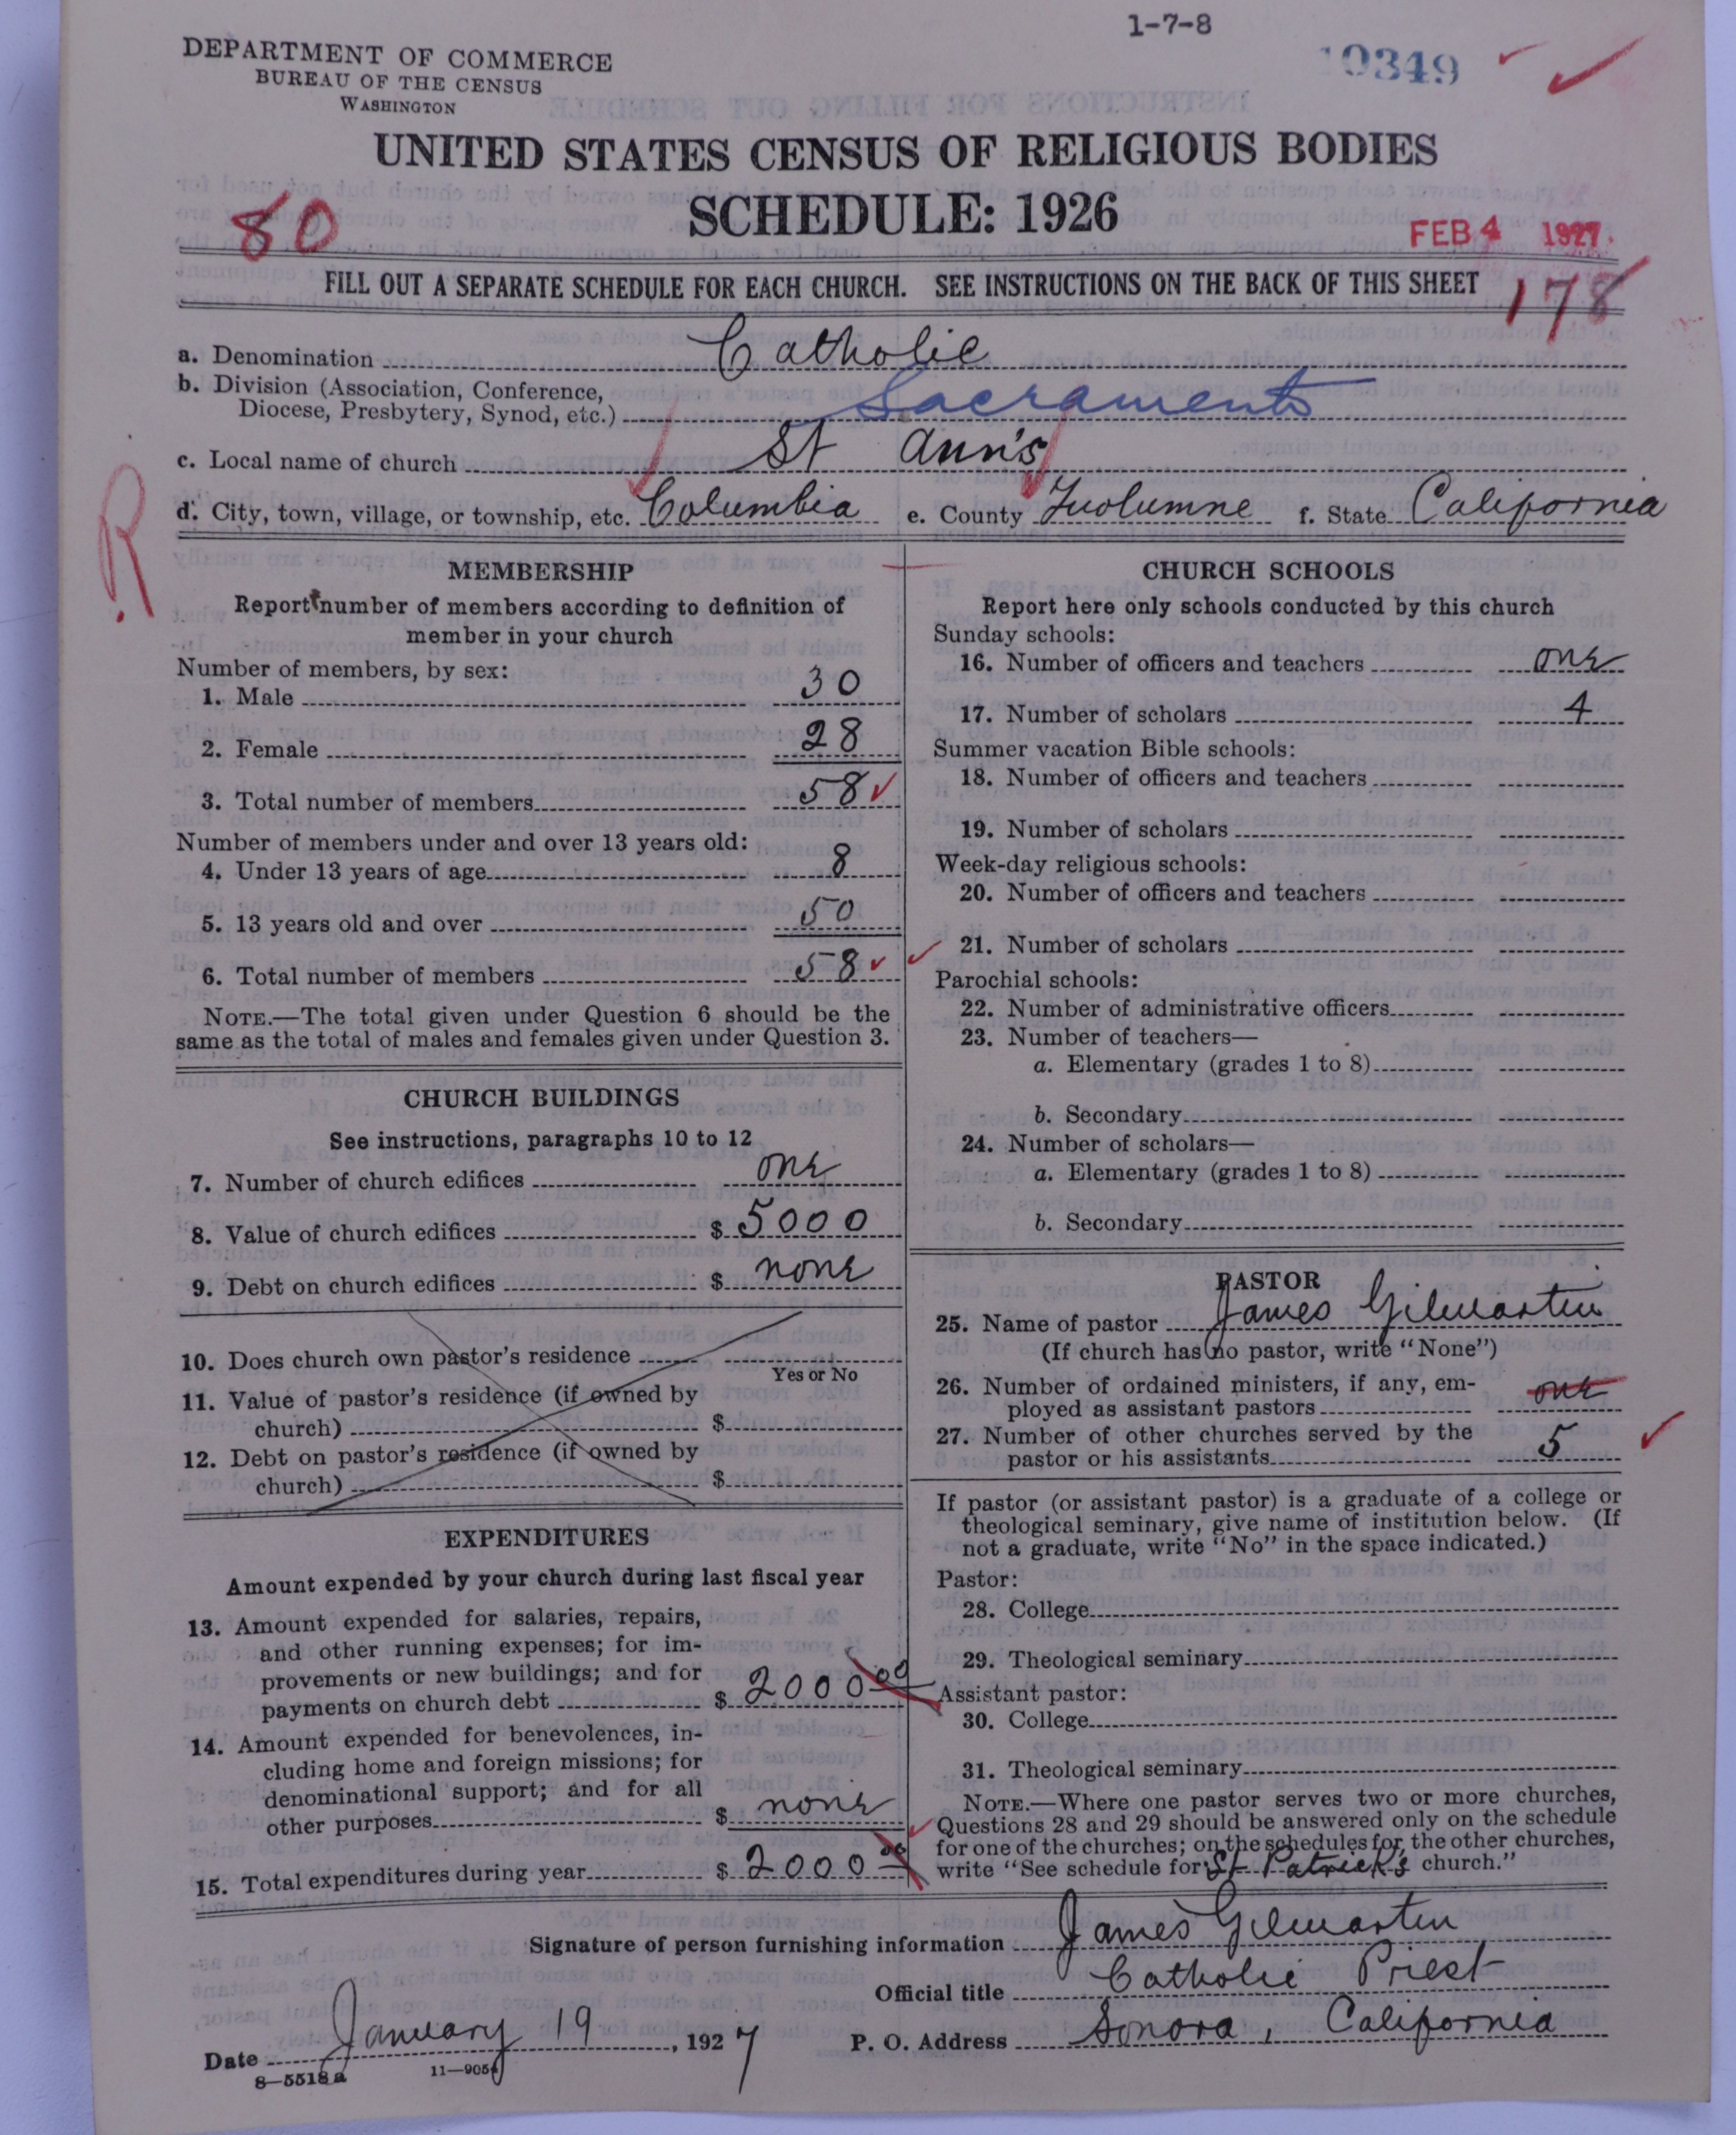 1-7-8
DEPARTMENT OF COMMERCE
BUREAU OF THE CENSUS
WASHINGTON
10349
UNITED STATES CENSUS OF RELIGIOUS BODIES
SCHEDULE: 1926
80
FEB 4 1927
FILL OUT A SEPARATE SCHEDULE FOR EACH CHURCH. SEE INSTRUCTIONS ON THE BACK OF THIS SHEET
178
a. Denomination Catholic
b. Division (Association, Conference,
Diocese, Presbytery, Synod, etc.) Sacramento
c. Local name of church St Ann's
d. City, town, village, or township, etc. Columbia e. County Tuolumne f. State California
R
MEMBERSHIP
Report number of members according to definition of
member in your church
Number of members, by sex:
1. Male 30
2. Female 28
3. Total number of members 58
Number of members under and over 13 years old:
4. Under 13 years of age 8
5. 13 years old and over 50
6. Total number of members 58
NOTE.—The total given under Question 6 should be the
same as the total of males and females given under Question 3.
CHURCH BUILDINGS
See instructions, paragraphs 10 to 12
7. Number of church edifices one
8. Value of church edifices $ 5000
9. Debt on church edifices $ none
10. Does church own pastor's residence
Yes or No
11. Value of pastor's residence (if owned by
church) $
12. Debt on pastor's residence (if owned by
church) $
EXPENDITURES
Amount expended by your church during last fiscal year
13. Amount expended for salaries, repairs,
and other running expenses; for im-
provements or new buildings; and for
payments on church debt $ 2000 00
14. Amount expended for benevolences, in-
cluding home and foreign missions; for
denominational support; and for all
other purposes $ none
15. Total expenditures during year $ 2000 00
CHURCH SCHOOLS
Report here only schools conducted by this church
Sunday schools:
16. Number of officers and teachers one
17. Number of scholars 4
Summer vacation Bible schools:
18. Number of officers and teachers
19. Number of scholars
Week-day religious schools:
20. Number of officers and teachers
21. Number of scholars
Parochial schools:
22. Number of administrative officers
23. Number of teachers—
a. Elementary (grades 1 to 8)
b. Secondary
24. Number of scholars—
a. Elementary (grades 1 to 8)
b. Secondary
PASTOR
25. Name of pastor James Gilmartin
(If church has no pastor, write "None")
26. Number of ordained ministers, if any, em-
ployed as assistant pastors one
27. Number of other churches served by the
pastor or his assistants 5
If pastor (or assistant pastor) is a graduate of a college or
theological seminary, give name of institution below. (If
not a graduate, write "No" in the space indicated.)
Pastor:
28. College
29. Theological seminary
Assistant pastor:
30. College
31. Theological seminary
NOTE.—Where one pastor serves two or more churches,
Questions 28 and 29 should be answered only on the schedule
for one of the churches; on the schedules for the other churches,
write "See schedule for St Patrick's church."
Signature of person furnishing information James Gilmartin
Official title Catholic Priest
Date January 19, 1927 P. O. Address Sonora, California
8—5518a 11—9056